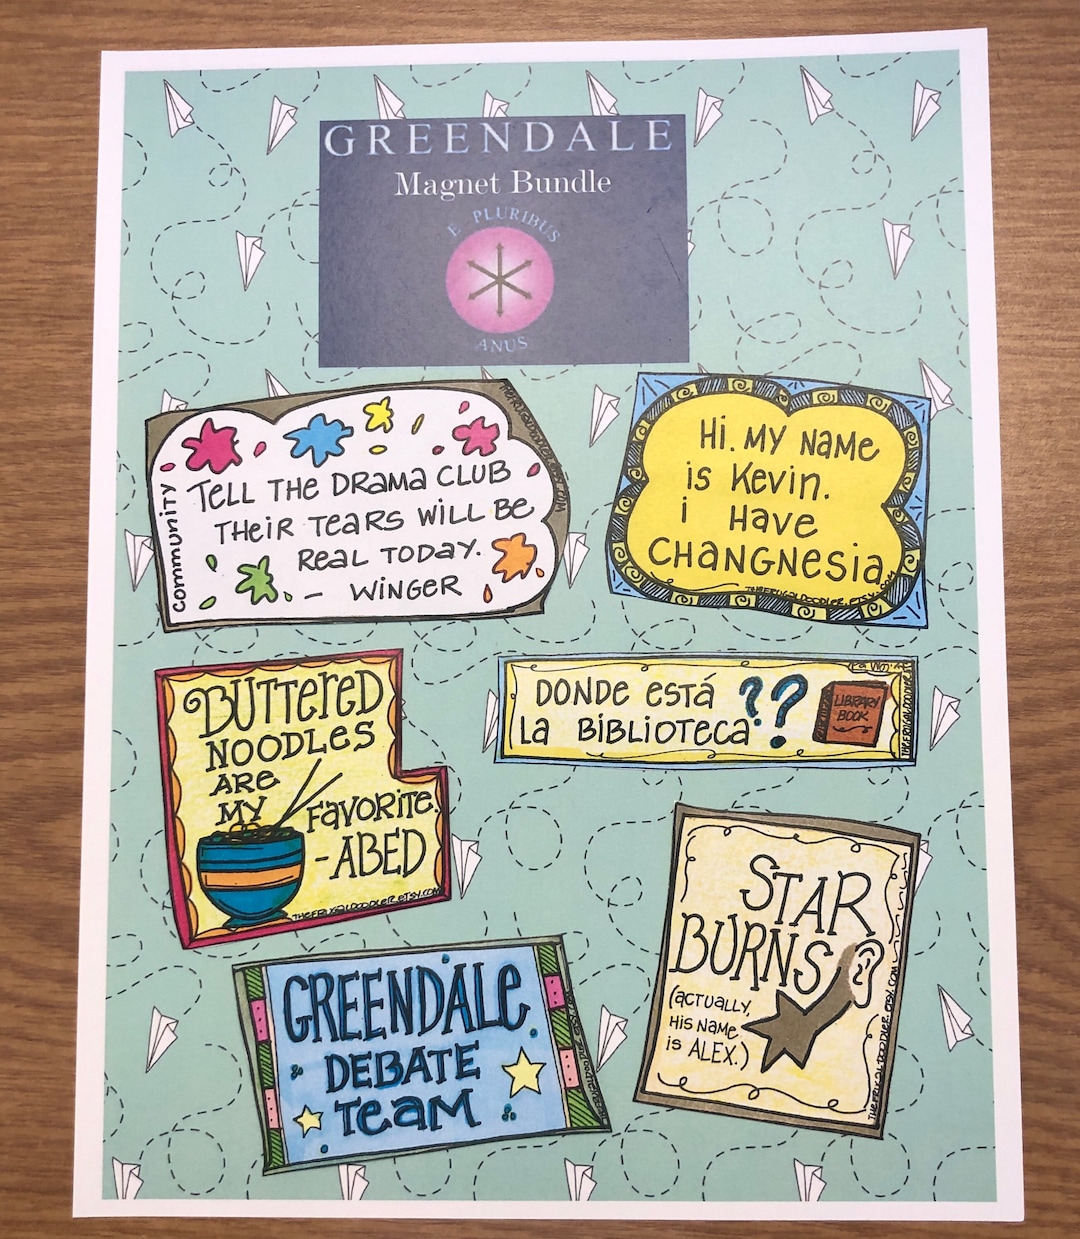 GREENDALE
Magnet Bundle
E PLURIBUS
ANUS
community
TELL THE DRAMA CLUB
THEIR TEARS WILL BE
REAL TODAY.
- WINGER
THEFRUGALDOODLER.ETSY.COM
Hi. MY NAME
is Kevin.
i Have
CHANGNESIA
THEFRUGALDOODLER.ETSY.COM
BUTTERED
NOODLES
ARE
MY
FAVORITE.
-ABED
THEFRUGALDOODLER.ETSY.COM
DONDE ESTÁ
LA BIBLIOTECA??
LIBRARY
BOOK
THEFRUGALDOODLER
STAR
BURNS
(ACTUALLY,
HIS NAME
is ALEX.)
THEFRUGALDOODLER.ETSY.COM
GREENDALE
DEBATE
TEAM
THEFRUGALDOODLER.ETSY.COM